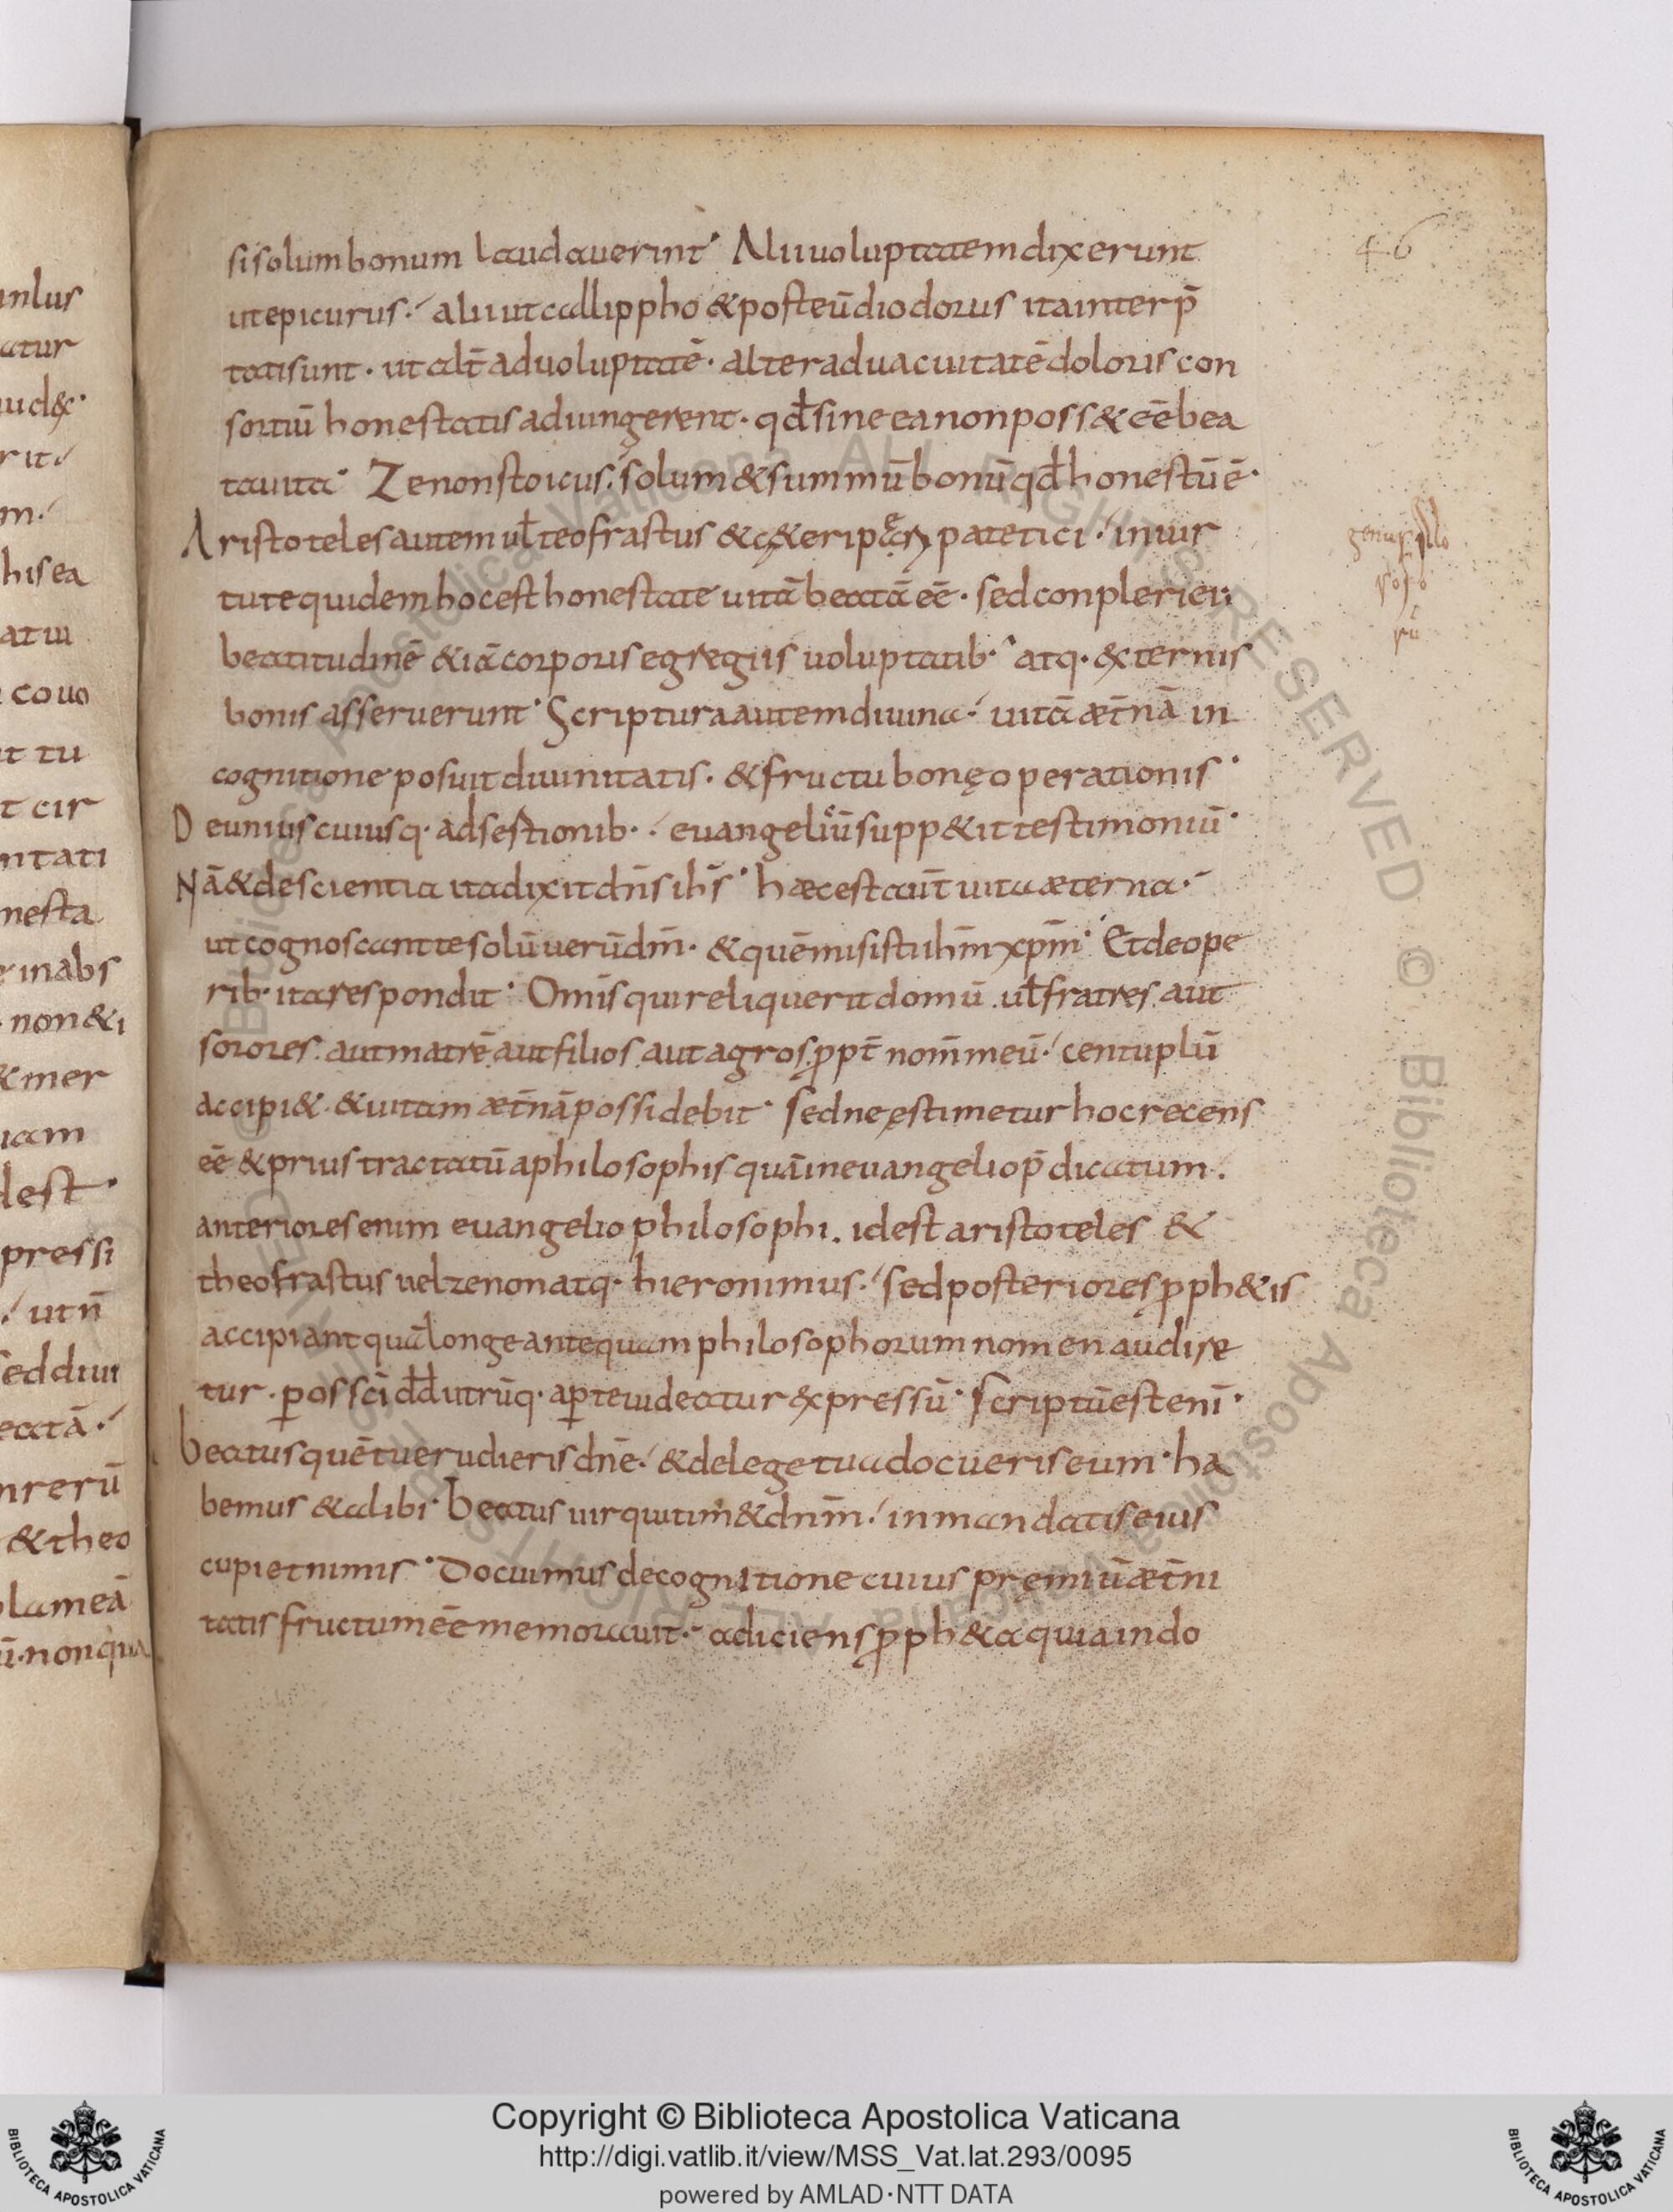 46
si solum bonum laudauerint· Alii uoluptatem dixerunt
ut epicurus·́ alii ut callippho & post eū diodorus ita interp̄
tati sunt· ut alt̄ ad uoluptatē· alter ad uacuitatē doloris con
sortiū honestatis adiungerent· qđ sine ea non poss& eē bea
ta uita· Zenon stoicus·́ solum & summū bonū qđ honestū ē·
Aristoteles autem ul̄ teofrastus & c&eri patetici·́ in uir
tute quidem hoc est honestate uitā beatā eē· sed conplerier
beatitudinē & iā corporis egregiis uoluptatib·́ atq· &ternis
bonis asseruerunt· Scriptura autem diuina·́ uitā æt̄nā in
cognitione posuit diuinitatis· & fructu bonę operationis·
De unius cuiusq· adsestionib·́ euangeliū supp&it testimoniū·
Nā & de scientia ita dixit dn̄s ih̄s· hæc est aut̄ uita æterna·́
ut cognoscant te solū uerū dm̄· & quē misisti ih̄m xp̄m· Et de ope
rib· ita respondit· Om̄is qui reliquerit domū ul̄ fratres aut
sorores· aut matrē aut filios aut agros ꝓpt̄ nom̄ meū·́ centuplū
accipi&· & uitam æt̄nā possidebit· sed ne ęstimetur hoc recens
eē & prius tractatū a philosophis quā in euangelio p̄dicatum·
anteriores enim euangelio philosophi· id est aristoteles &
theofrastus uel zenon atq· hieronimus·́ sed posteriores ꝓph&is
accipiant quā longe antequam philosophorum nomen audire
tur· ꝑ os sc̄i dd̄ utrūq· aꝑte uideatur &pressū· scriptū est eni̅·
beatus quē tu erudieris dn̄e·́ & de lege tua docueris eum· ha
bemus & alibi· beatus uir qui tim& dn̄m·́ in mandatis eius
cupiet nimis· Docuimus de cognitione cuius premiū æt̄ni
tatis fructum eē memorauit·́ adiciens ꝓph&a quia in do
Copyright © Biblioteca Apostolica Vaticana
http://digi.vatlib.it/view/MSS_Vat.lat.293/0095
powered by AMLAD·NTT DATA
BIBLIOTECA APOSTOLICA VATICANA
BIBLIOTECA APOSTOLICA VATICANA